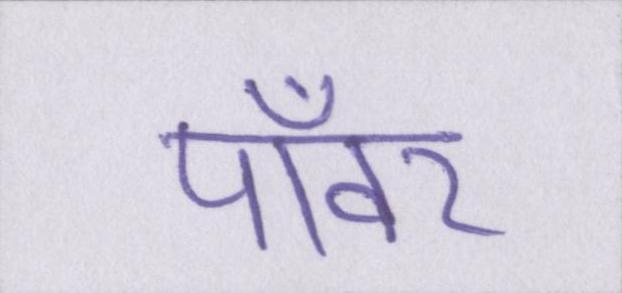 पाँवर